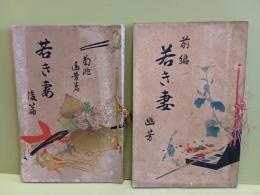 前編
若き妻
幽芳
菊池
幽芳著
若き妻
後篇